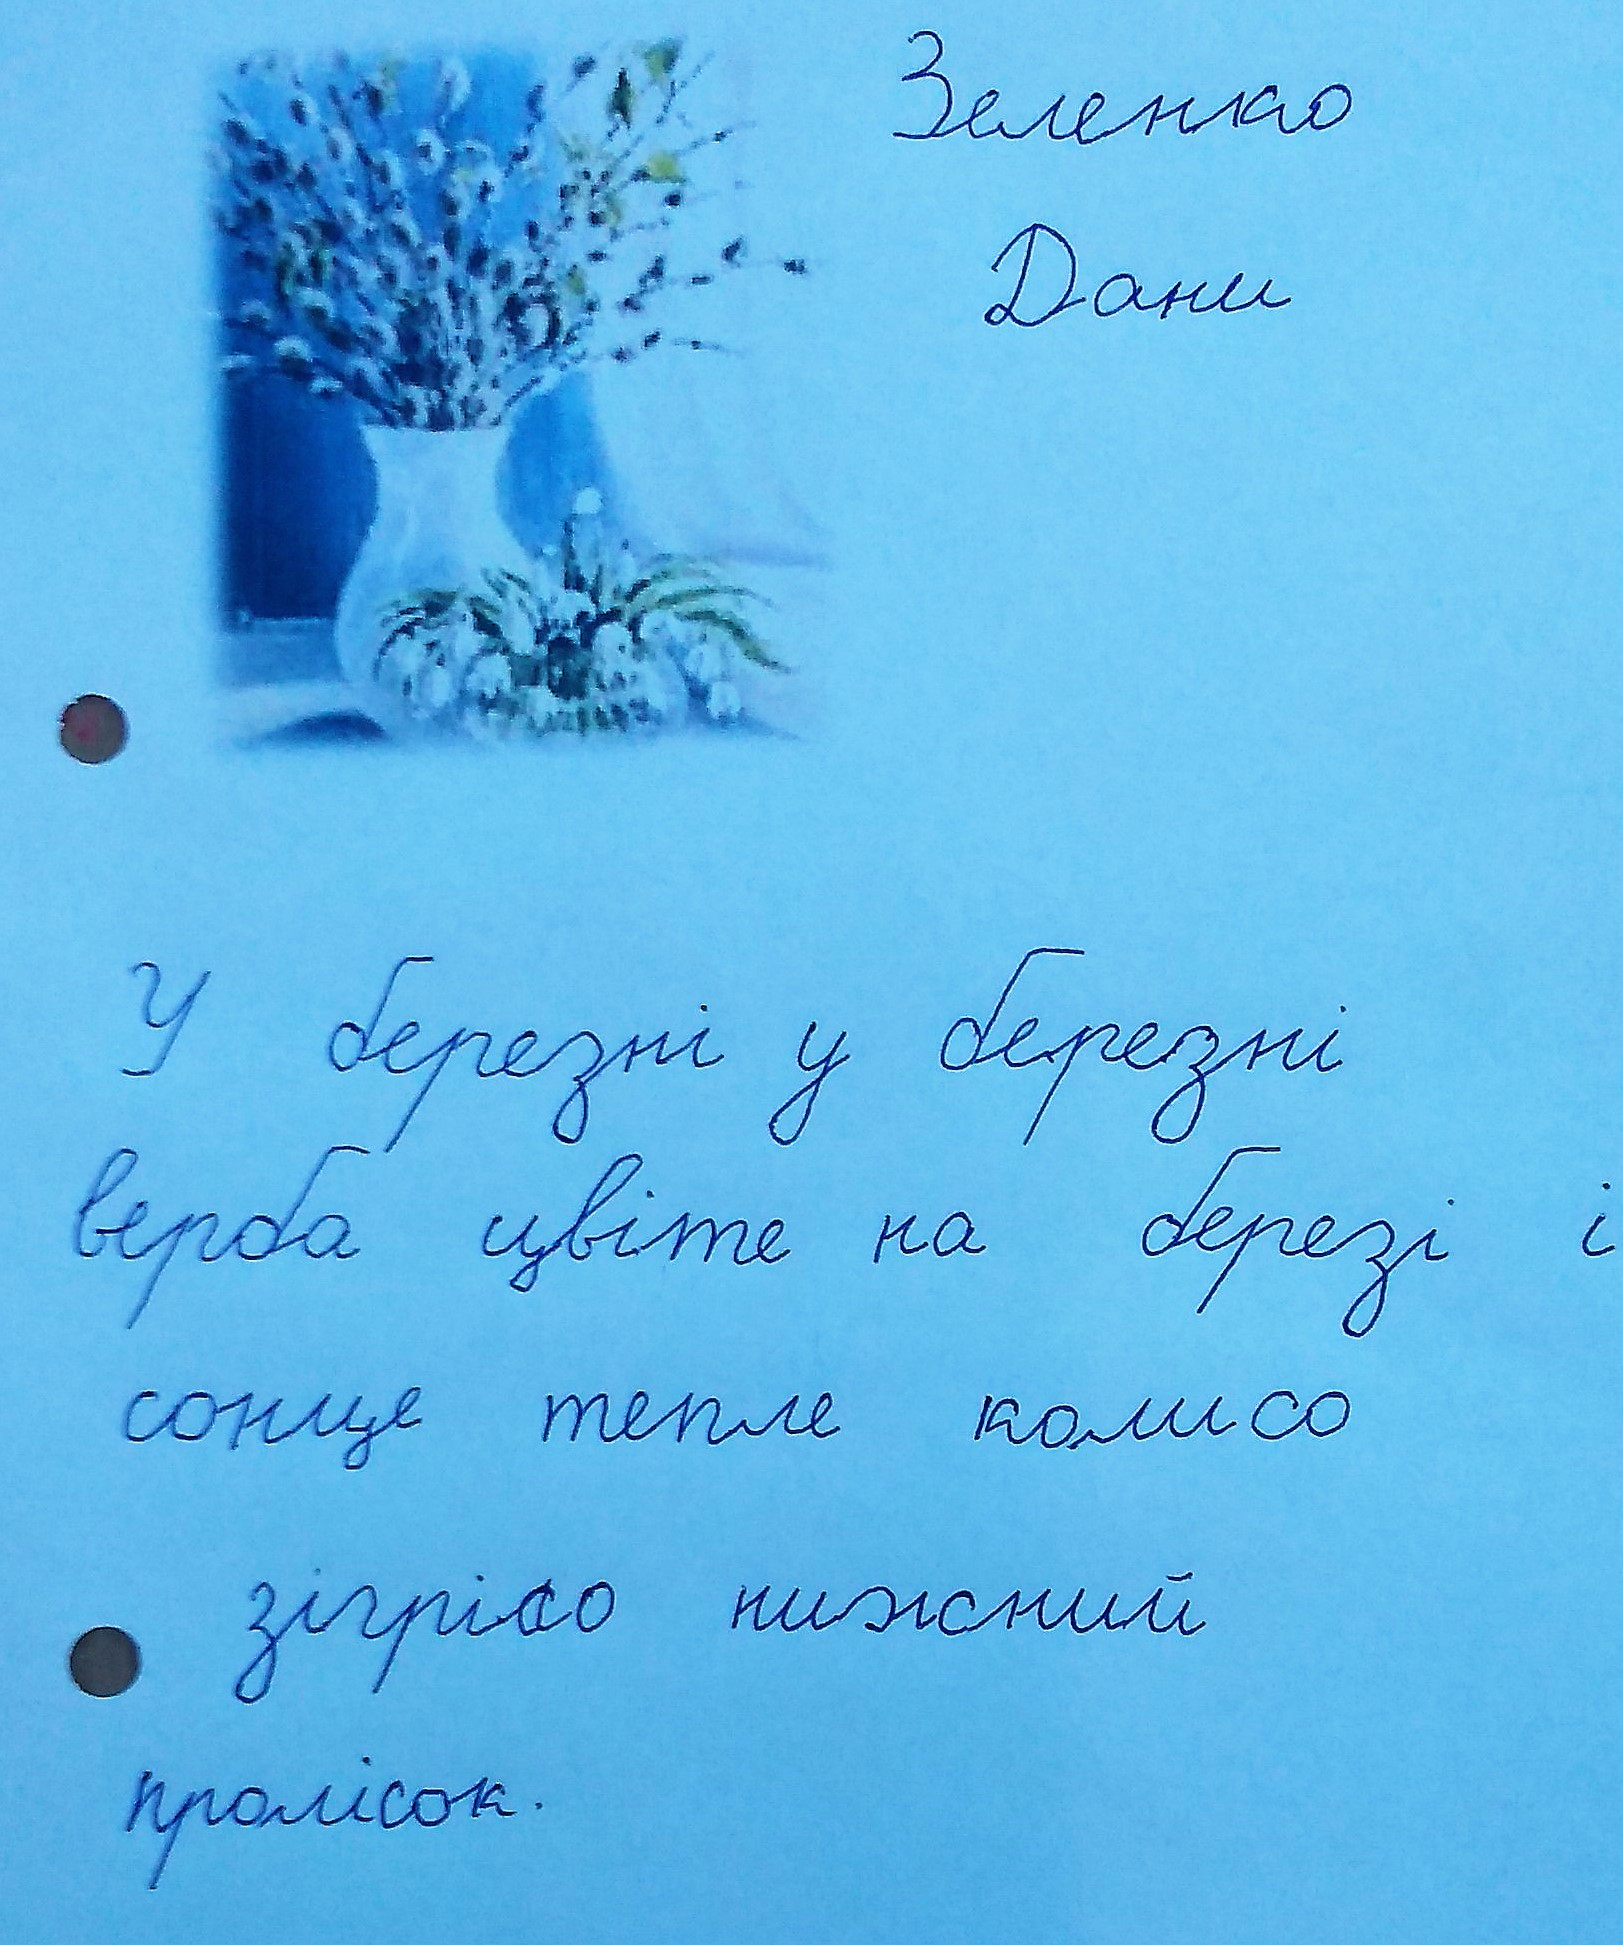 Зеленко
Дани
У березні у березні
верба цвіте на березі і
сонце тепле колисо
зігрісо нижсний
пролісок.